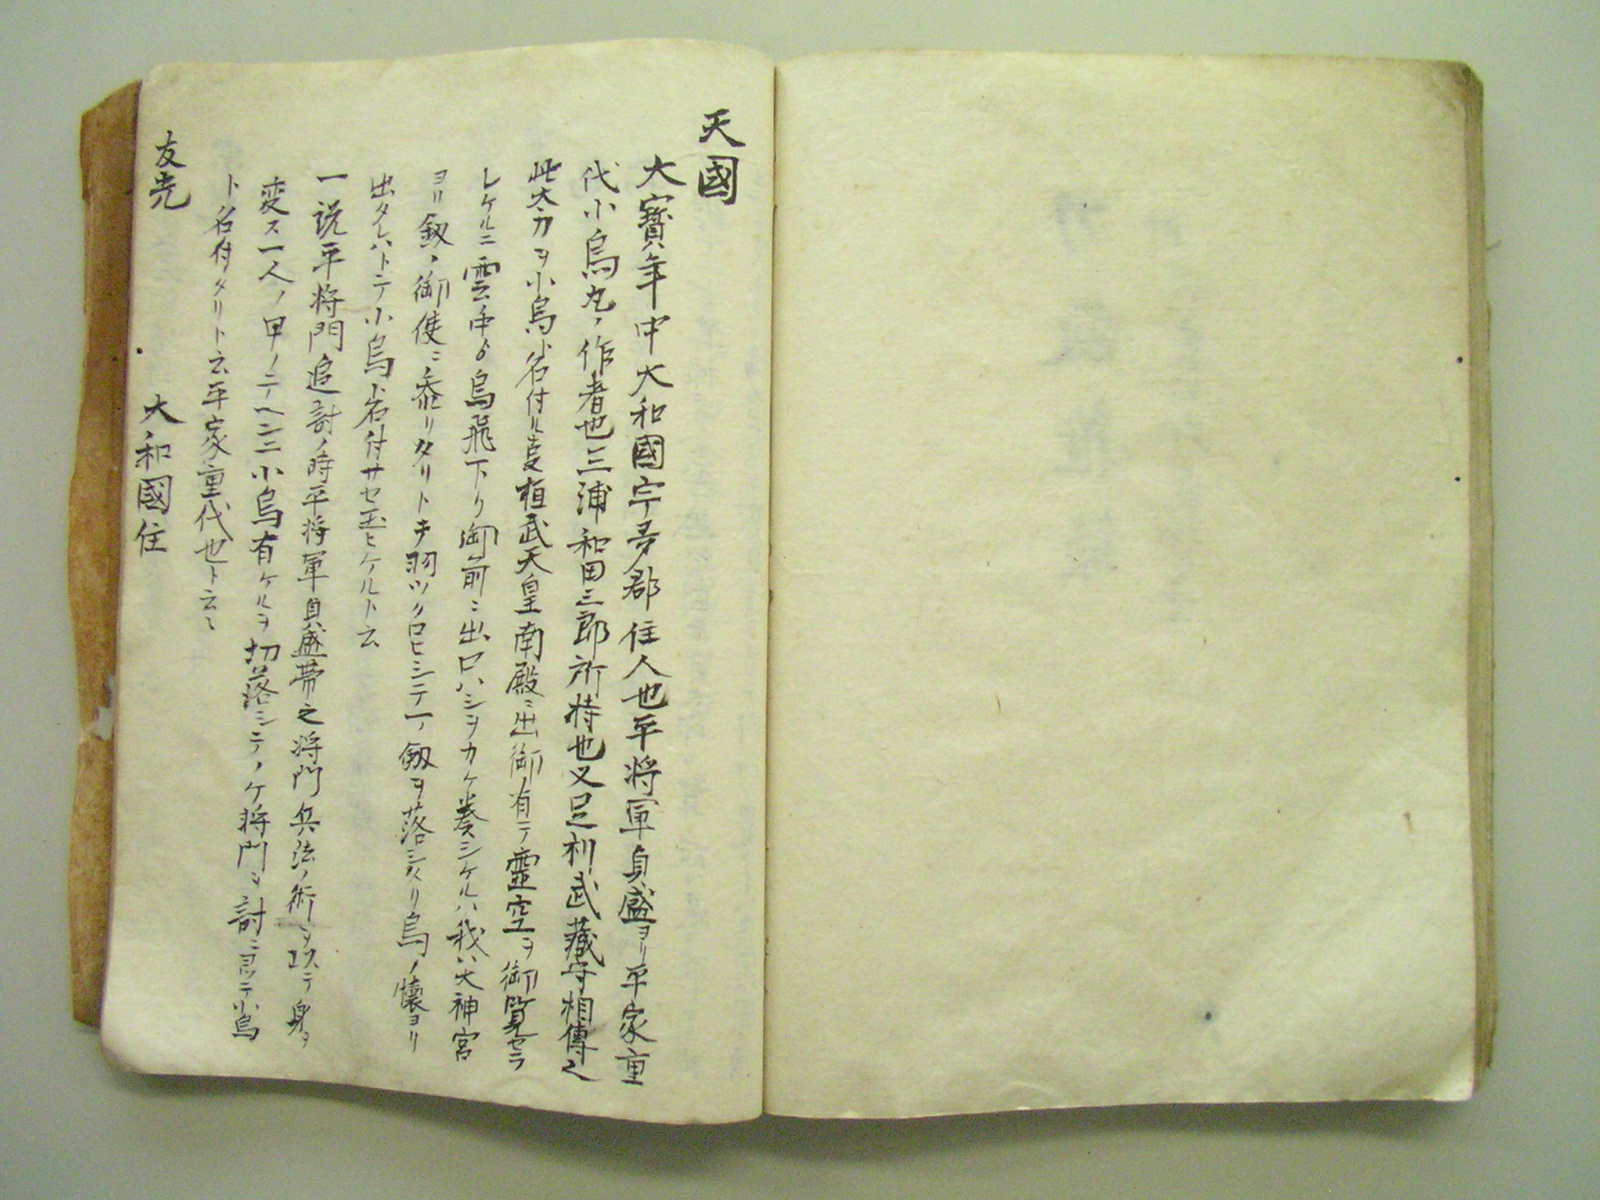 天國
大寳年中大和國宇多郡住人也平将軍貞盛ヨリ平家重
代小烏丸ノ作者也三浦和田三郎所持也又足利武藏守相傳之
此太刀ヲ小烏ト名付ル支桓武天皇南殿ニ出御有テ霊空ヲ御覧セラ
レケルニ雲中ゟ烏飛下リ御前ニ出口ハシヲカケ巻シケルハ我ハ大神宮
ヨリ釼ノ御使ニ参リタリトキ羽ツクロヒシテ一ノ釼ヲ落シタリ烏ノ懐ヨリ
出タレハトテ小烏ト名付サセ玉ヒケルト云
一説平将門追討ノ時平将軍貞盛帯之将門兵法ノ術ヲ以テ身ヲ
変ス一人ノ甲ノテヘンニ小烏有ケルヲ切落シテノケ将門ヲ討ニヨツテ小烏
ト名付タリト云平家重代也ト云々
友光 大和國住